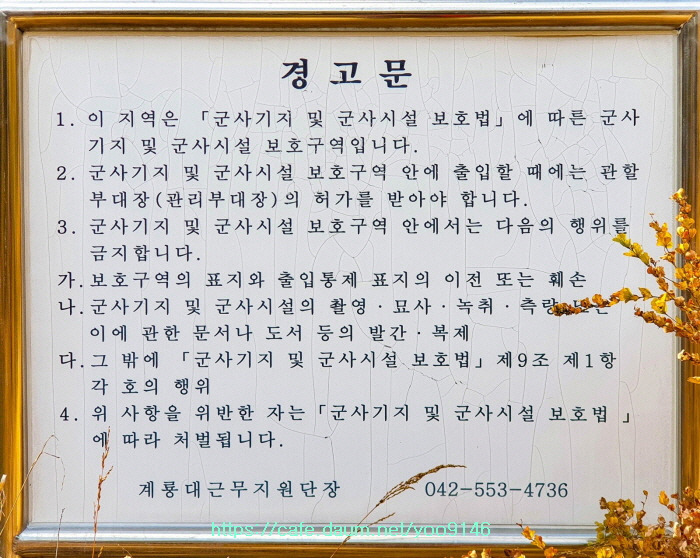 경고문
1. 이 지역은 「군사기지 및 군사시설 보호법」에 따른 군사
기지 및 군사시설 보호구역입니다.
2. 군사기지 및 군사시설 보호구역 안에 출입할 때에는 관할
부대장(관리부대장)의 허가를 받아야 합니다.
3. 군사기지 및 군사시설 보호구역 안에서는 다음의 행위를
금지합니다.
가. 보호구역의 표지와 출입통제 표지의 이전 또는 훼손
나. 군사기지 및 군사시설의 촬영·묘사·녹취·측량
이에 관한 문서나 도서 등의 발간·복제
다. 그 밖에 「군사기지 및 군사시설 보호법」제9조 제1항
각 호의 행위
4. 위 사항을 위반한 자는「군사기지 및 군사시설 보호법 」
에 따라 처벌됩니다.
계룡대근무지원단장 042-553-4736
https://cafe.daum.net/ynp9146